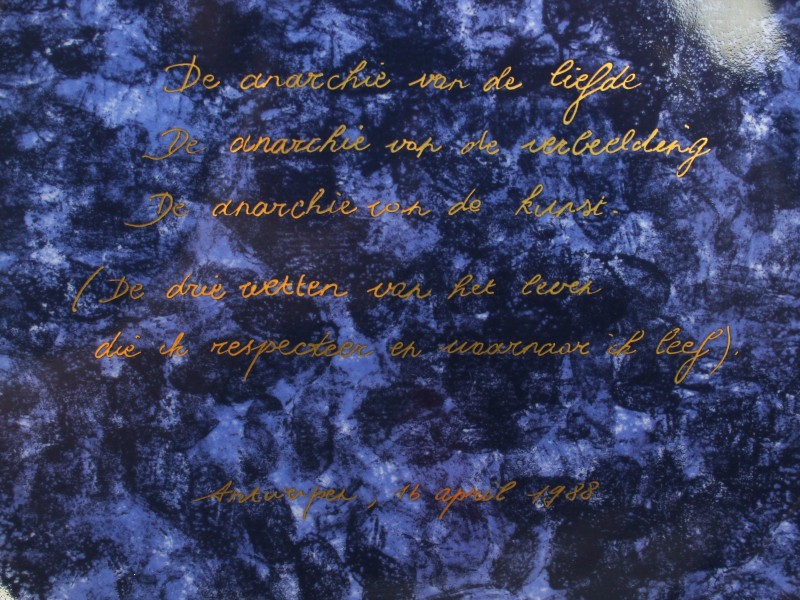 De anarchie van de liefde
De anarchie van de verbeelding
De anarchie van de kunst.
(De drie wetten van het leven
die ik respecteer en waarnaar ik leef).
Antwerpen, 16 april 1988